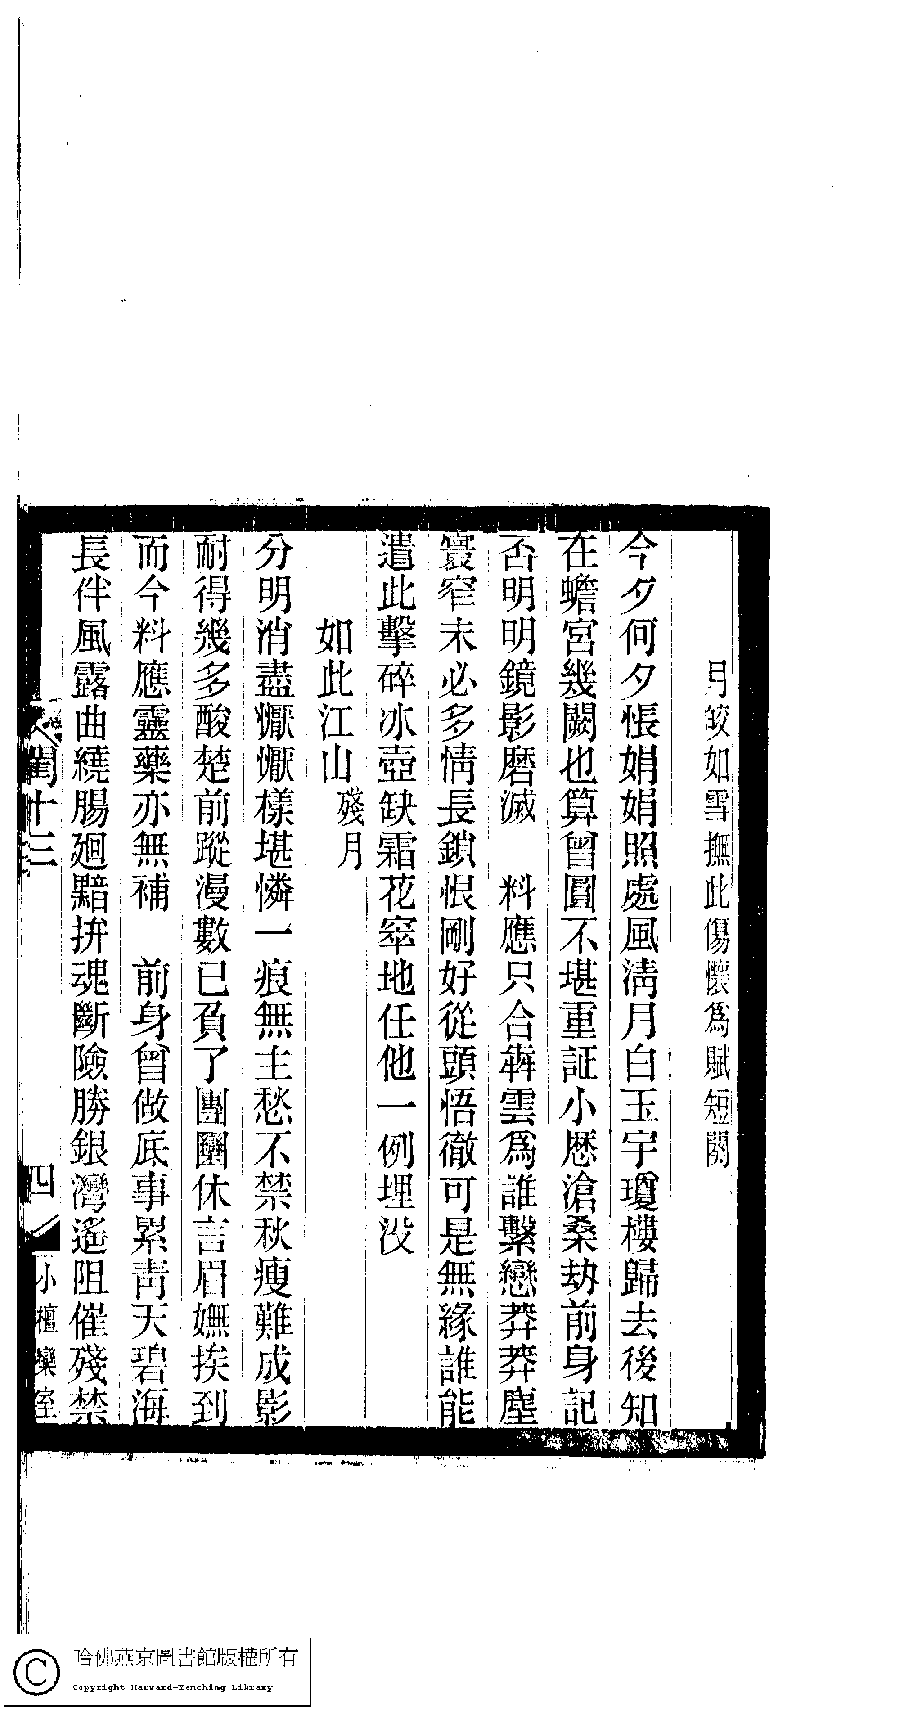 月皎如雪撫此傷懷爲賦短闋
今夕何夕悵娟娟照處風淸月白玉宇瓊樓歸去後知
在蟾宮幾闕也算曾圓不堪重証小厯滄桑劫前身記
否明明鏡影磨滅　料應只合犇雲爲誰繫戀莽莽塵
寰窄未必多情長鎖恨剛好從頭悟徹可是無緣誰能
遣此擊碎冰壺缺霜花窣地任他一例埋没
如此江山 殘月
分明消盡懨懨樣堪憐一痕無主愁不禁秋瘦難成影
耐得幾多酸楚前蹤漫數已負了團圞休言眉嫵挨到
而今料應靈藥亦無補　前身曾做底事累靑天碧海
長伴風露曲繞腸廻黯拚魂斷險勝銀灣遙阻催殘禁
閨十三
四
小檀欒室
哈佛燕京圖書館版權所有
Copyright Harvard-Yenching Library